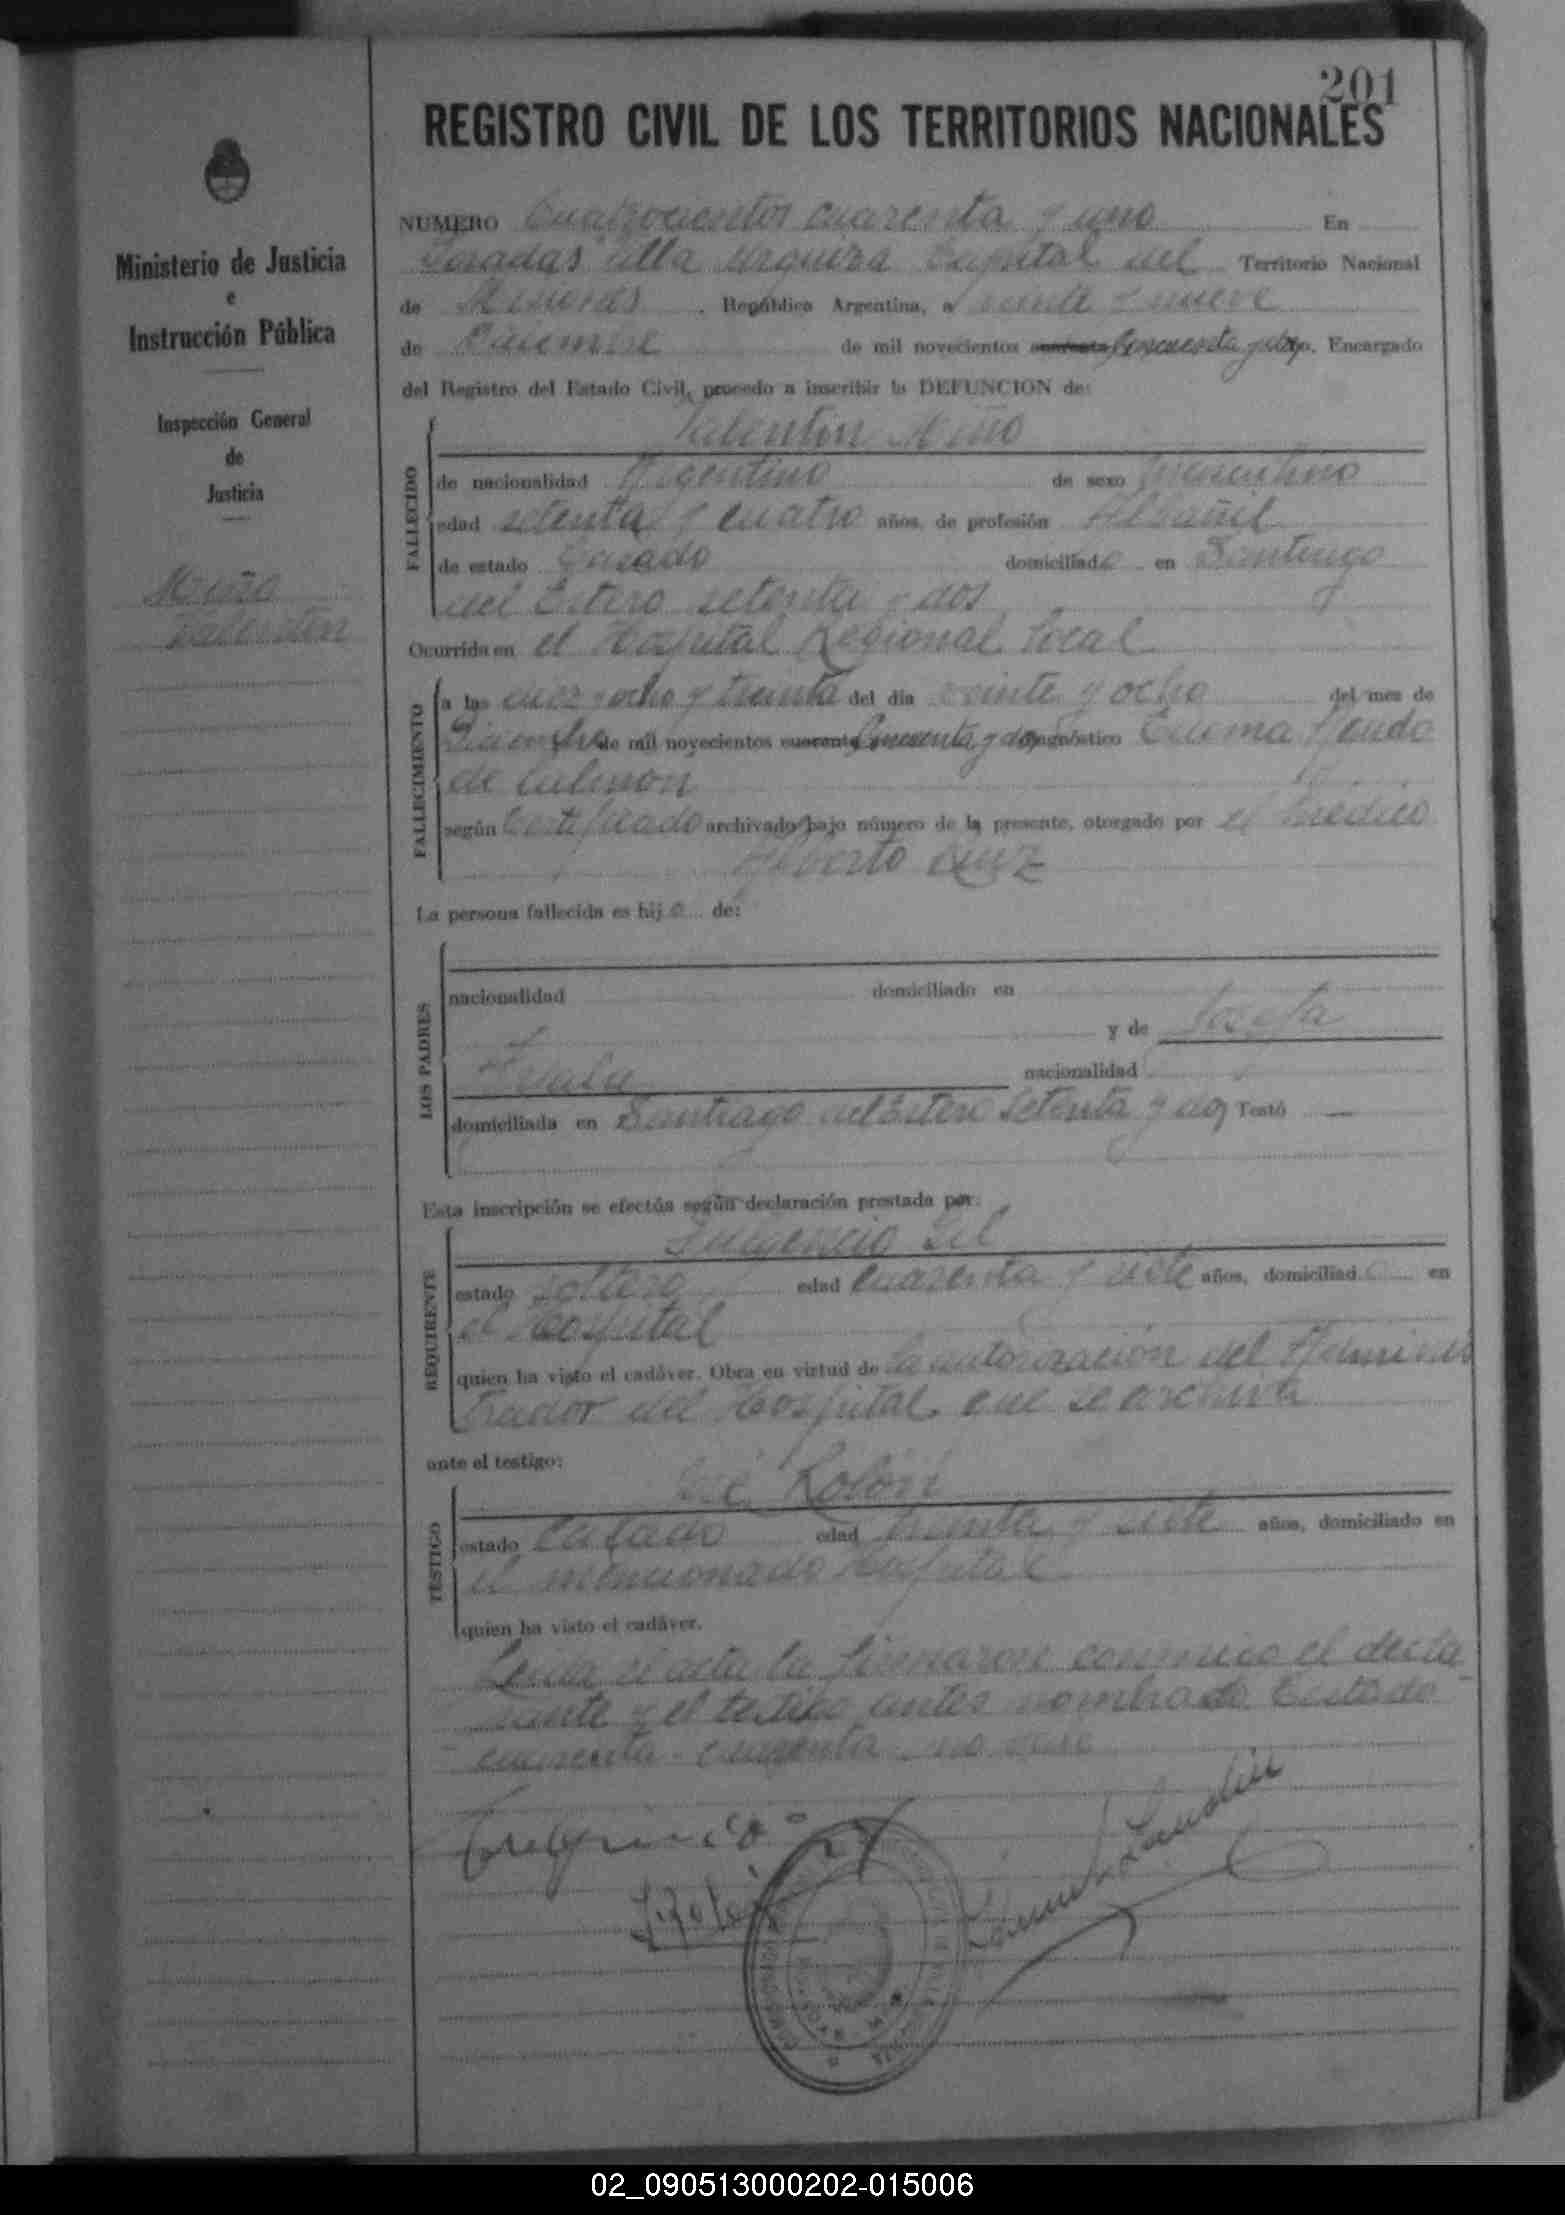 201
REGISTRO CIVIL DE LOS TERRITORIOS NACIONALES
Ministerio de Justicia
e
Instrucción Pública
Inspección General
de
Justicia
Miño
Valentin
NUMERO Cuatrocientos cuarenta y uno En
Posadas Villa Urquiza Capital del Territorio Nacional
de Misiones, República Argentina, a veinte y nueve
de Diciembre de mil novecientos cuarenta Cincuenta y dos yo, Encargado
del Registro del Estado Civil, procedo a inscribir la DEFUNCION de:
FALLECIDO
Valentin Miño
de nacionalidad Argentino de sexo Masculino
edad setenta y cuatro años, de profesión Albañil
de estado Casado domiciliado en Santiago
del Estero setenta y dos
Ocurrida en el Hospital Regional Local
FALLECIMIENTO
a las diez y ocho y treinta del día veinte y ocho del mes de
Diciembre de mil novecientos cuarenta Cincuenta y dos diagnóstico Edema Agudo
de Pulmon
según Certificado archivado bajo número de la presente, otorgado por el médico
Alberto Ruiz
La persona fallecida es hijo de:
LOS PADRES
nacionalidad domiciliado en
y de Josefa
nacionalidad
domiciliada en Santiago del Estero setenta y dos Testó —
Esta inscripción se efectúa según declaración prestada por:
REQUIRENTE
Gil
estado soltero edad cuarenta y siete años, domiciliado en
el Hospital
quien ha visto el cadáver. Obra en virtud de la autorización del Adminis
trador del Hospital que se archiva
ante el testigo:
TESTIGO
José Rolón
estado Casado edad treinta y siete años, domiciliado en
el mencionado Hospital
quien ha visto el cadáver.
Leida el acta la firmaron conmigo el decla
rante y el testigo antes nombrado Testado
cuarenta - cuarenta no vale
J. Rolón
02_090513000202-015006